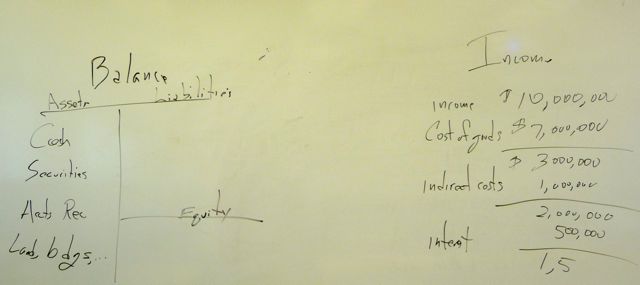 Balance
Assets Liabilities
Cash
Securities
Accts Rec
Equity
Land, bdgs,...
Income
Income $10,000,000
Cost of goods $7,000,000
$3000,000
Indirect costs 1,000,000
2,000,000
Interest 500,000
1,5